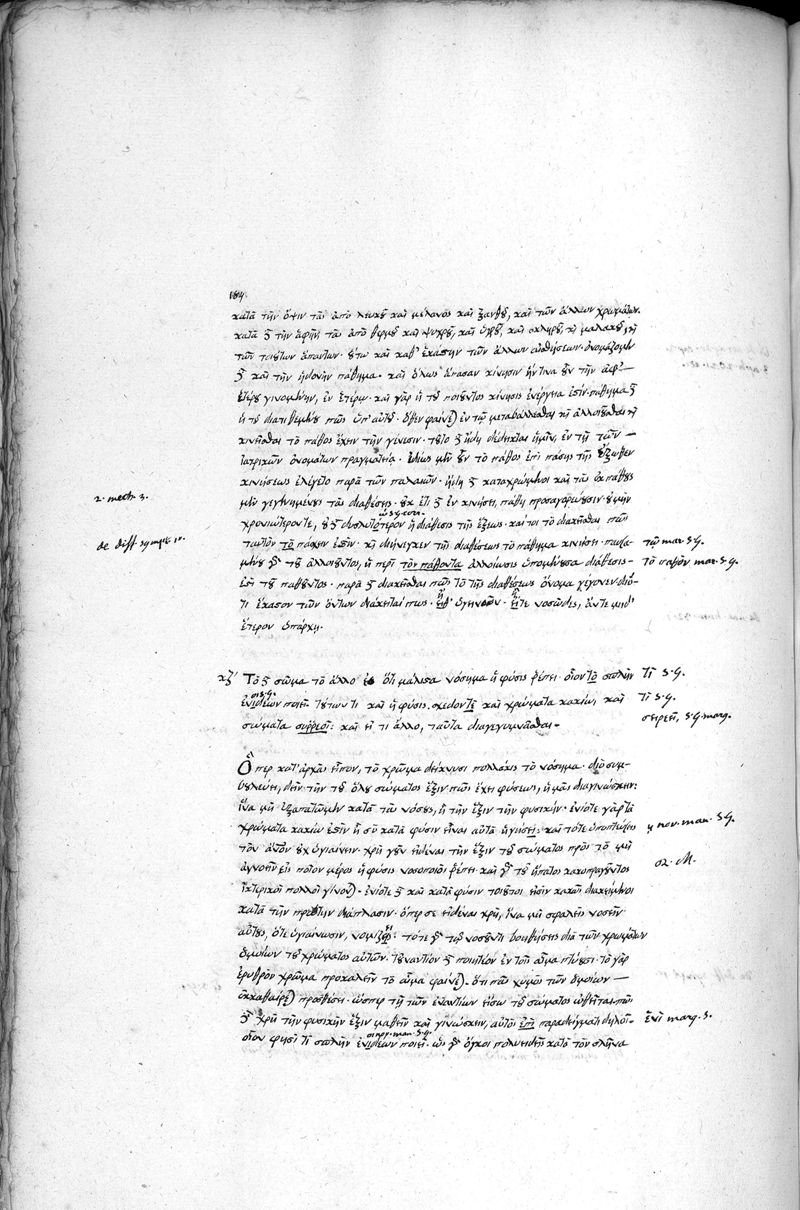 184.
κατὰ τὴν ὄψιν τὰς ἀπὸ λευκοῦ καὶ μέλανος καὶ ξανθοῦ, καὶ τῶν ἄλλων χρωμάτων.
κατὰ δὲ τὴν ἁφὴν τὰς ἀπὸ θερμοῦ καὶ ψυχροῦ, καὶ ὑγροῦ, καὶ σκληροῦ, καὶ μαλακοῦ, καὶ
τῶν τοιούτων ἁπάντων. οὕτω καὶ καθ' ἑκάστην τῶν ἄλλων αἰσθήσεων. ὀνομάζομεν
δὲ καὶ τὴν ἡδονὴν πάθημα. καὶ ὅλως ἅπασαν κίνησιν ἥντινα οὖν τὴν ἀφ'
ἑτέρου γινομένην, ἐν ἑτέρῳ. καὶ γὰρ ἡ τοῦ ποιοῦντος κίνησις ἐνέργεια ἐστίν. πάθημα δὲ
ἡ τοῦ διατιθεμένου πῶς ὑπ' αὐτοῦ. ὅθεν φαίνεται ἐν τῷ μεταβάλλεσθαι καὶ ἀλλοιοῦσθαι καὶ
κινεῖσθαι τὸ πάθος ἔχειν τὴν γένεσιν. τοῦτο δὲ ἤδη δέδεικται ἡμῖν, ἐν τῇ τῶν
ἰατρικῶν ὀνομάτων πραγματείᾳ. ἰδίως μὲν οὖν τὸ πάθος ἐπὶ πάσης τῆς ἔξωθεν
κινήσεως ἐλέγετο παρὰ τῶν παλαιῶν. ἤδη δὲ καταχρώμενοι καὶ τὰς ἐκ πάθους
2. meth. 3.
μὲν γεγενημένους τὰς διαθέσεις. οὐκ ἔτι δὲ ἐν κινήσει, πάθη προσαγορεύουσιν.
χρονιώτερόν τε, καὶ δυσλυτότερον ἡ διάθεσις τῆς ἕξεως. καίτοι τὸ διακεῖσθαι πῶς
de diff. sympt. 1.
ταυτὸν τὸ πάσχειν ἐστίν. καὶ διήνεγκεν τῆς διαθέσεως τὸ πάθημα κινήσει. τῷ mar. S.G.
μένου γὰρ τοῦ ἀλλοιοῦντος, ἡ περὶ τὸν πάθοντα ἀλλοίωσις ὑπομένουσα διάθεσις mar. S.G.
ἐστὶ τοῦ παθόντος. παρὰ δὲ διακεῖσθαι πῶς τὸ τῆς διαθέσεως ὄνομα γέγονεν διό-
τι ἕκαστον τῶν ὄντων διάκειταί πως. εἴθ' ὑγιεινῶν. εἴτε νοσῶδες, ἄν τε μηδ'
ἕτερον ὑπάρχῃ.
κζ' Τὸ δὲ σῶμα τὸ ἄλλο ἐς ὅτι μάλιστα νόσημα ἡ φύσις ῥέπει. οἷον τὸ σπλὴν τί S.G.
ποιεῖ. τούτων τι καὶ ἡ φύσις. σχεδόν τε καὶ χρώματα κακίω, καὶ τί S.G.
σώματα : καὶ εἴ τι ἄλλο, ταῦτα διαγεγυμνᾶσθαι. S.G. marg.
Ὅπερ κατ' ἀρχὰς εἶπον, τὸ χρῶμα δείκνυσι πολλάκις τὸ νόσημα. διὸ συμ-
βουλεύει, δεῖν τὴν τοῦ ὅλου σώματος ἕξιν πῶς ἔχει φύσεως, ἡμᾶς διαγινώσκειν:
ἵνα μὴ ἐξαπατῶμεν κατὰ τὰς νόσους, ἢ τὴν ἕξιν τὴν φυσικήν. ἐνίοτε γὰρ τὰ
χρώματα κακίω ἐστὶν ἢ σὺ κατὰ φύσιν εἶναι αὐτὰ ἡγήσῃ. καὶ τότε ὑποπτεύεις
τὸν αὐτὸν οὐχ ὑγιαίνειν. χρὴ γοῦν εἰδέναι τὴν ἕξιν τοῦ σώματος πρὸς τὸ μὴ
ἀγνοεῖν εἰς ποῖον μέρος ἡ φύσις νοσοποιὸς ῥέπει. καὶ γὰρ τοῦ ἥπατος κακοπραγοῦντος
ἰκτερικοὶ πολλοὶ γίνονται. ἐνίοτε δὲ καὶ κατὰ φύσιν τοιοῦτοι εἰσὶν κακῶς διακείμενοι
κατὰ τὴν πρώτην διάπλασιν. ὅπερ σε εἰδέναι χρή, ἵνα μὴ σφαλεὶς νοσεῖν
αὐτοὺς, ὅτε ὑγιαίνωσιν, νομίζῃς: τότε γὰρ τῷ νοσοῦντι βοηθήσεις διὰ τῶν χρωμάτων
ὁμοίων τοῦ χρώματος αὐτῶν. τοὐναντίον δὲ ποιητέον ἐν τοῖς αἷμα πτύουσι. τὸ γὰρ
ἐρυθρὸν χρῶμα προκαλεῖν τὸ αἷμα φαίνεται. ὅτι πᾶς χυμὸς τῶν ὁμοίων
ἐκκαθαίρεται προσθέσει. ὥσπερ τῇ τῶν ἐναντίων εἴσω τοῦ σώματος ὠθεῖται. πῶς
δὲ χρὴ τὴν φυσικὴν ἕξιν μαθεῖν καὶ γινώσκειν, αὐτὸς ἐπὶ παραδείγματι δηλοῖ. ἑνὶ marg. S.
οἷον φησὶ τί σπλὴν ποιεῖ. ὡς γὰρ ὄγκοι πολυειδεῖς κατὰ τὸν σπλῆνα